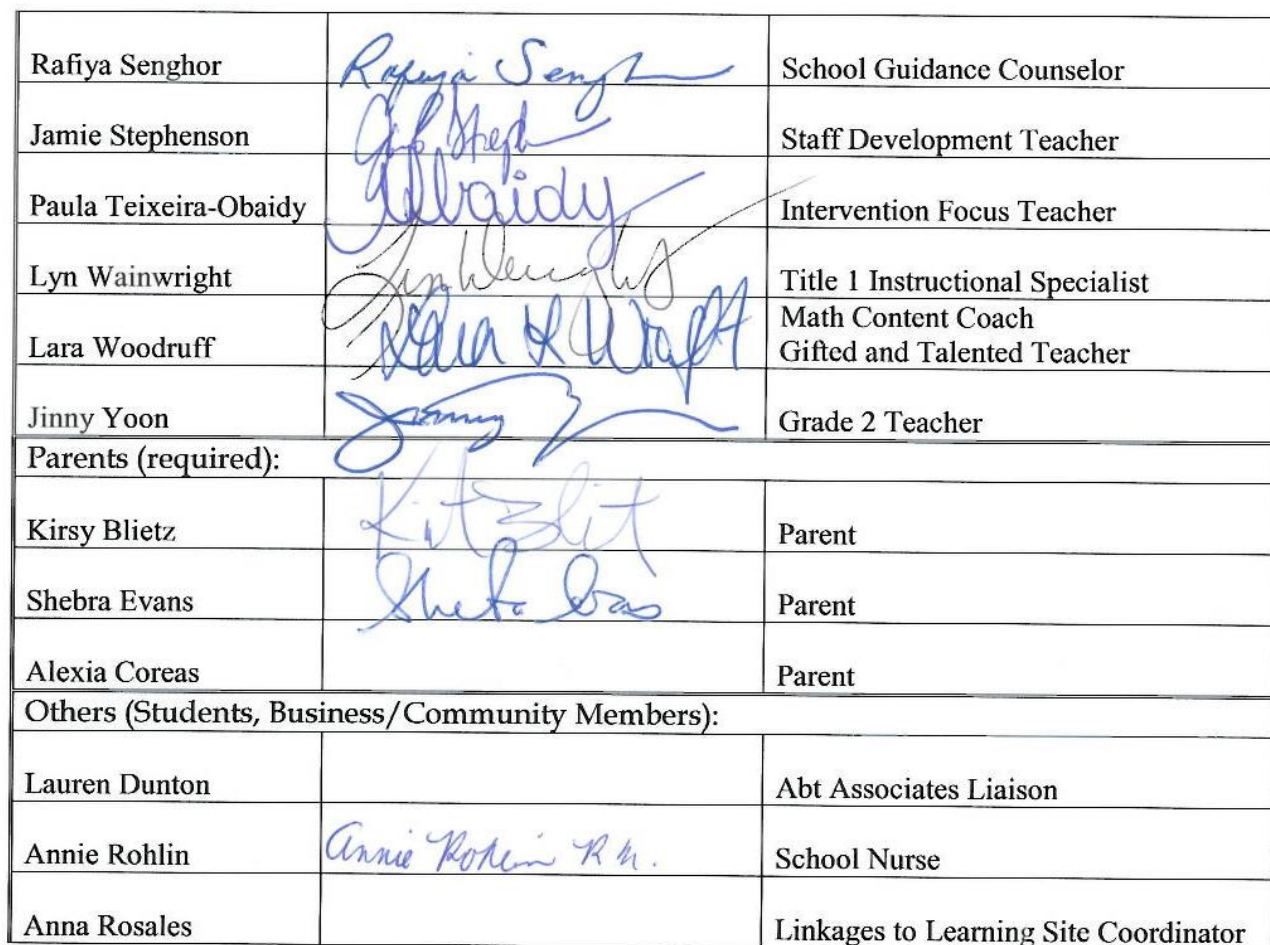 Rafiya Senghor Rafiya Sengh School Guidance Counselor
Jamie Stephenson Staff Development Teacher
Paula Teixeira-Obaidy Obaidy Intervention Focus Teacher
Lyn Wainwright Title 1 Instructional Specialist
Math Content Coach
Lara Woodruff Gifted and Talented Teacher
Jinny Yoon Jinny Grade 2 Teacher
Parents (required):
Kirsy Blietz Parent
Shebra Evans Parent
Alexia Coreas Parent
Others (Students, Business/Community Members):
Lauren Dunton Abt Associates Liaison
Annie Rohlin Annie Rohlin R.N. School Nurse
Anna Rosales Linkages to Learning Site Coordinator